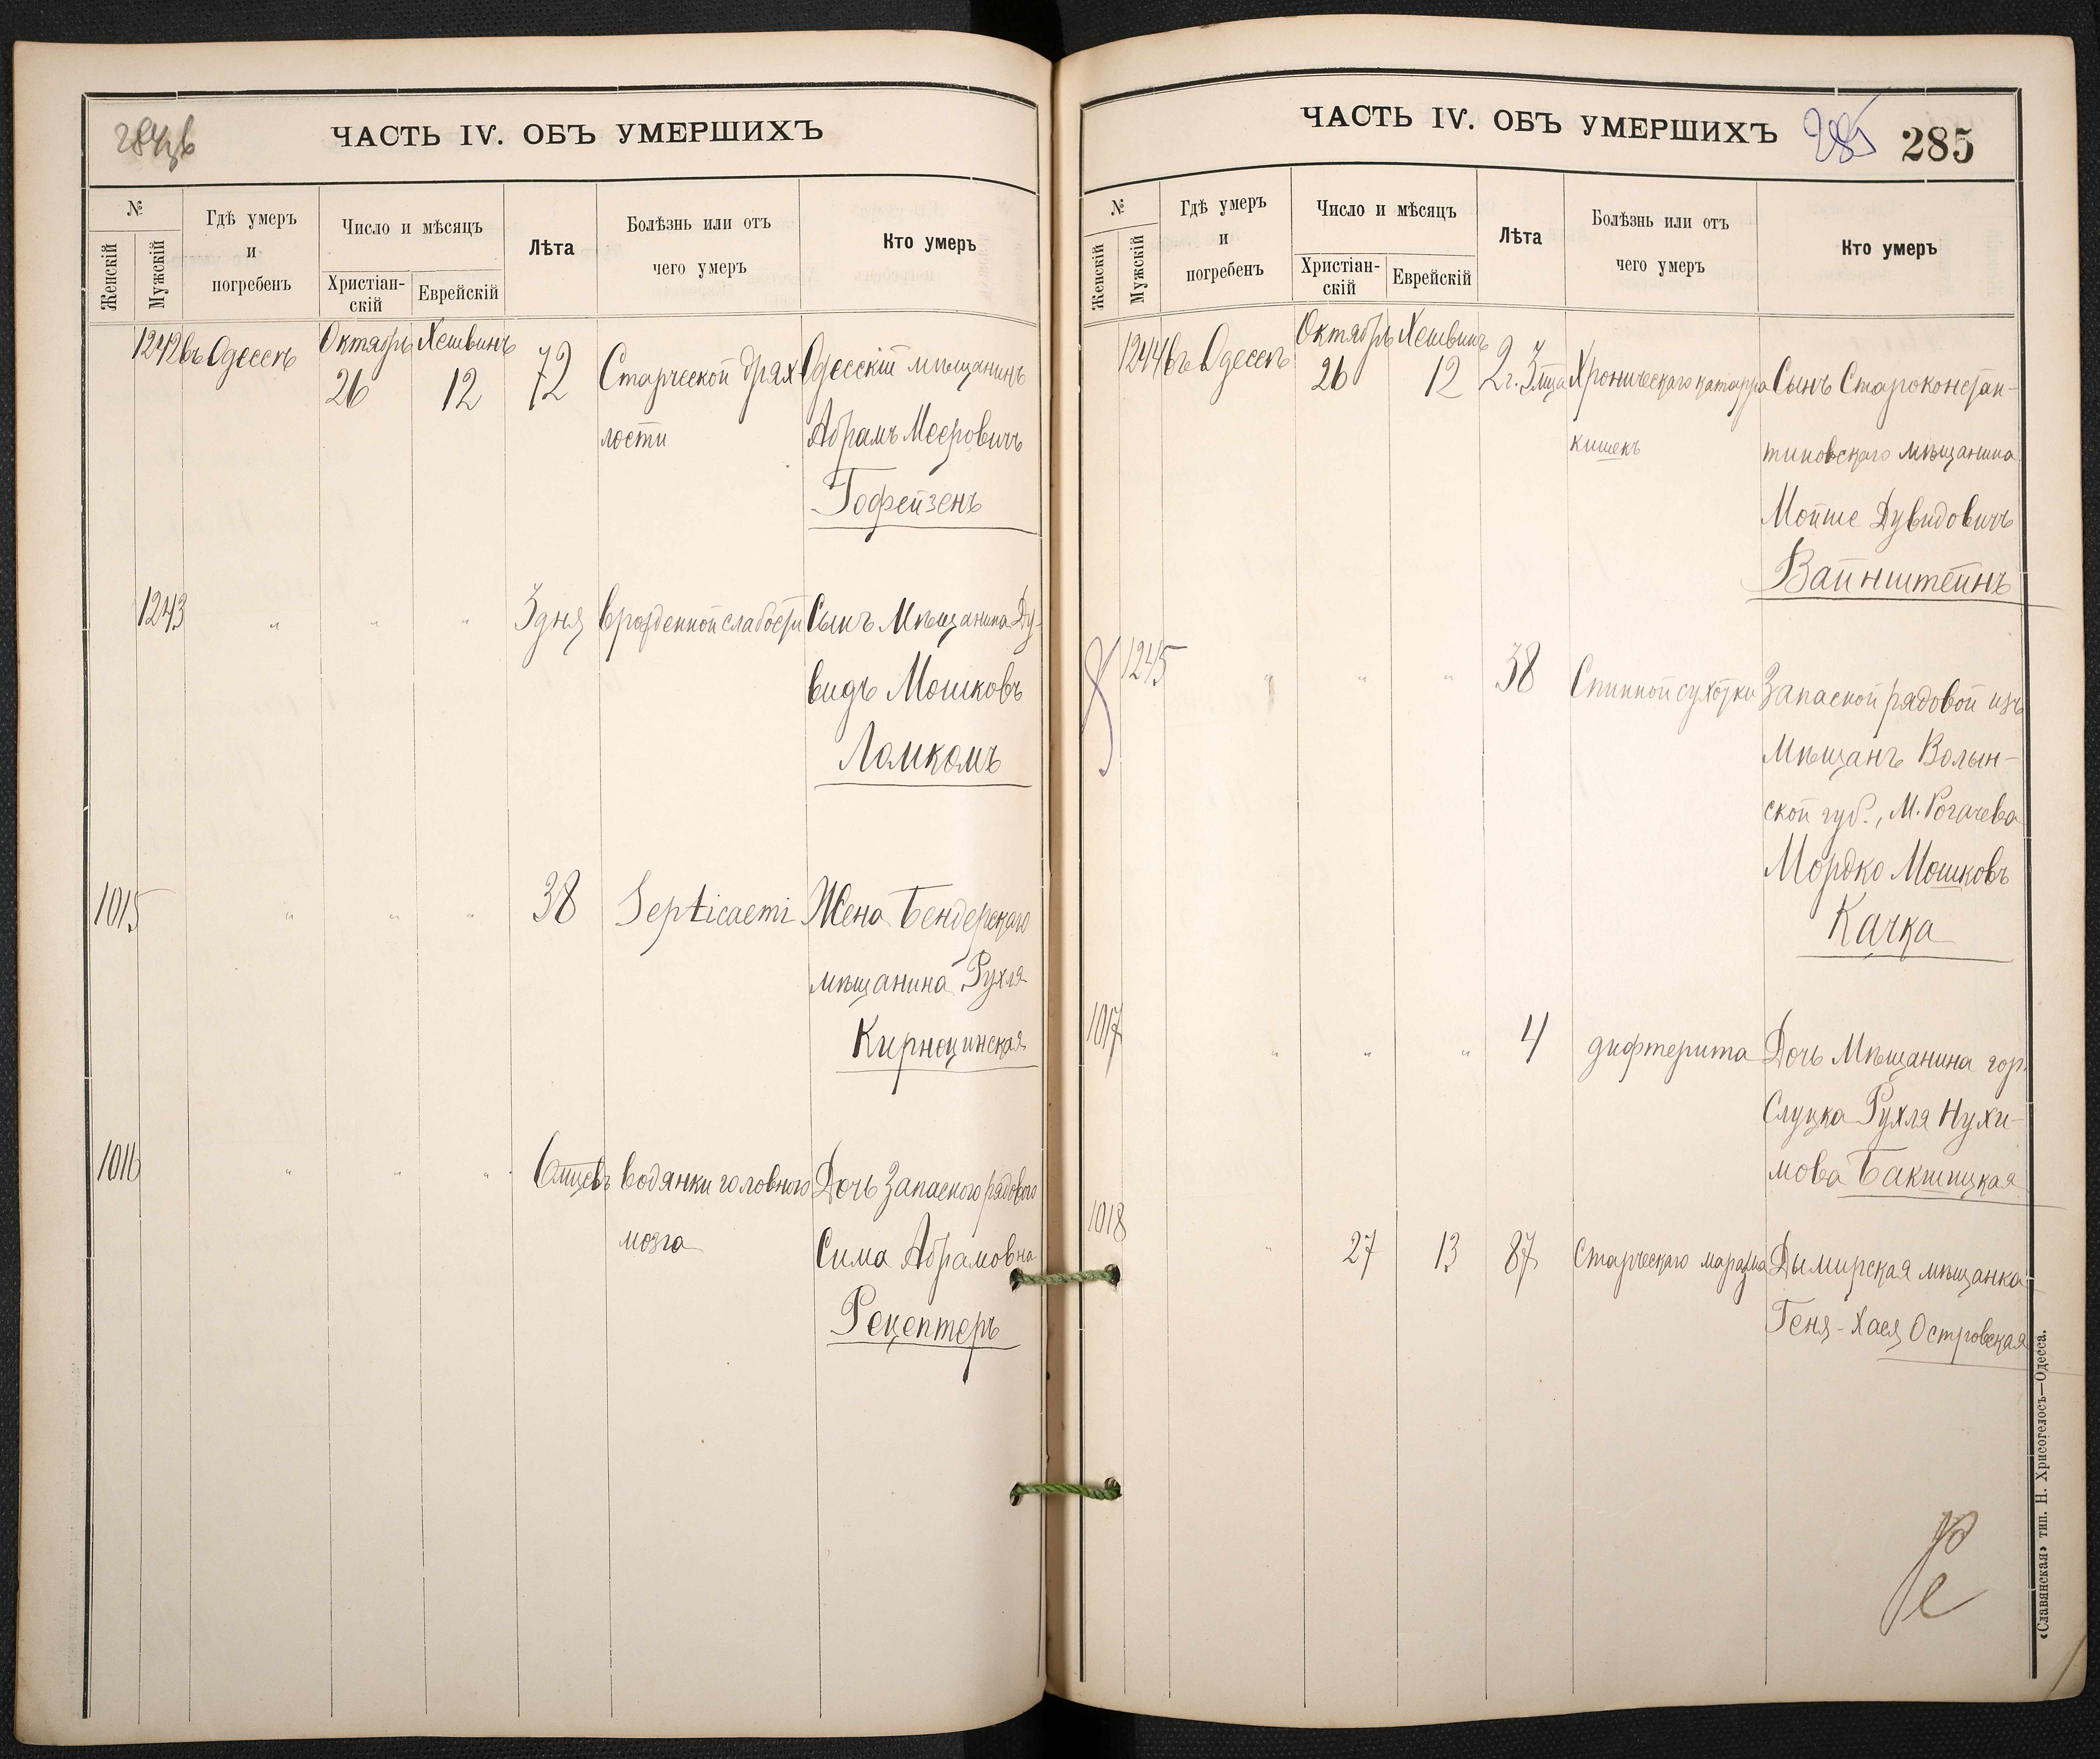 284об
ЧАСТЬ IV. ОБЪ УМЕРШИХЪ
№
Женскій
Мужскій
Гдѣ умеръ
и
погребенъ
Число и мѣсяцъ
Христіан-
скій
Еврейскій
Лѣта
Болѣзнь или отъ
чего умеръ
Кто умеръ
1242 въ Одессѣ Октябрь 26 Хешвинъ 12 72 Старческой дрях Одесскій мѣщанинъ
лости Абрамъ Мееровичъ
Гофейзенъ
1243 " " " 3 дня Врожденной слабости Сынъ Мѣщанина Ду-
видъ Мошковъ
Ломкомъ
1015 " " " 38 Septicaemi Жена Бендерскаго
мѣщанина Рухля
1016 " " " 6 мцевъ Водянки головного Дочь Запасного рядового
мозга Сима Абрамовна
Рецептеръ
ЧАСТЬ IV. ОБЪ УМЕРШИХЪ
285
285
№
Женскій
Мужскій
Гдѣ умеръ
и
погребенъ
Число и мѣсяцъ
Христіан-
скій
Еврейскій
Лѣта
Болѣзнь или отъ
чего умеръ
Кто умеръ
1244 въ Одессѣ Октябрь 26 Хешвинъ 12 2 г. 3 мца Хроническаго катарра Сынъ Староконстан-
кишекъ тиновскаго мѣщанина
Мойше Дувидовичъ
Вайнштейнъ
1245 " " " 38 Спинной сухотки Запасной рядовой изъ
Мѣщанъ Волын-
ской губ., М. Рогачева
Мордко Мошковъ
Качка
1017 " " " 4 дифтерита Дочь Мѣщанина гор.
Слуцка Рухля Нухи-
мова Бакшицкая
1018 " 27 13 87 Старческаго маразма Дымирская мѣщанка
Геня-Хася Островская
«Славянская» тип. Н. Хрисогелосъ—Одесса.